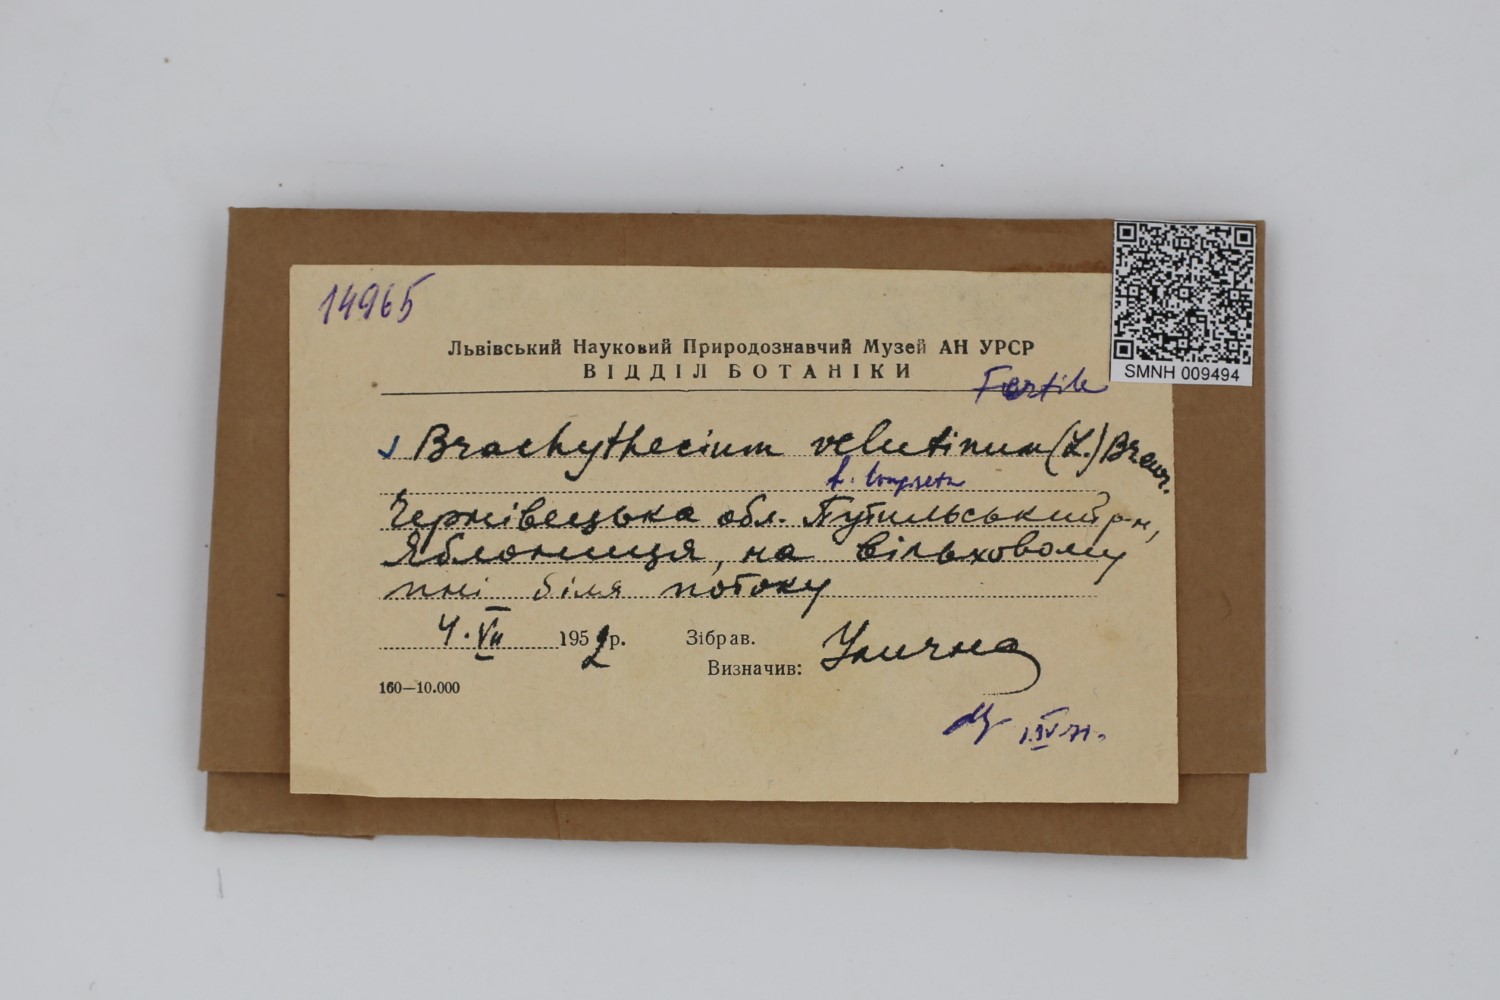 14965
SMNH 009494
Львівський Науковий Природознавчий Музей АН УРСР
ВІДДІЛ БОТАНІКИ
Fertile
Brachythecium velutinum (L.)
f. longiseta
Чернівецька обл. Путильський р-н,
Яблониця, на вільховому
пні біля потоку
4. VII 1952 р. Зібрав.
Визначив: Улична
160—10.000
1.IV 71.